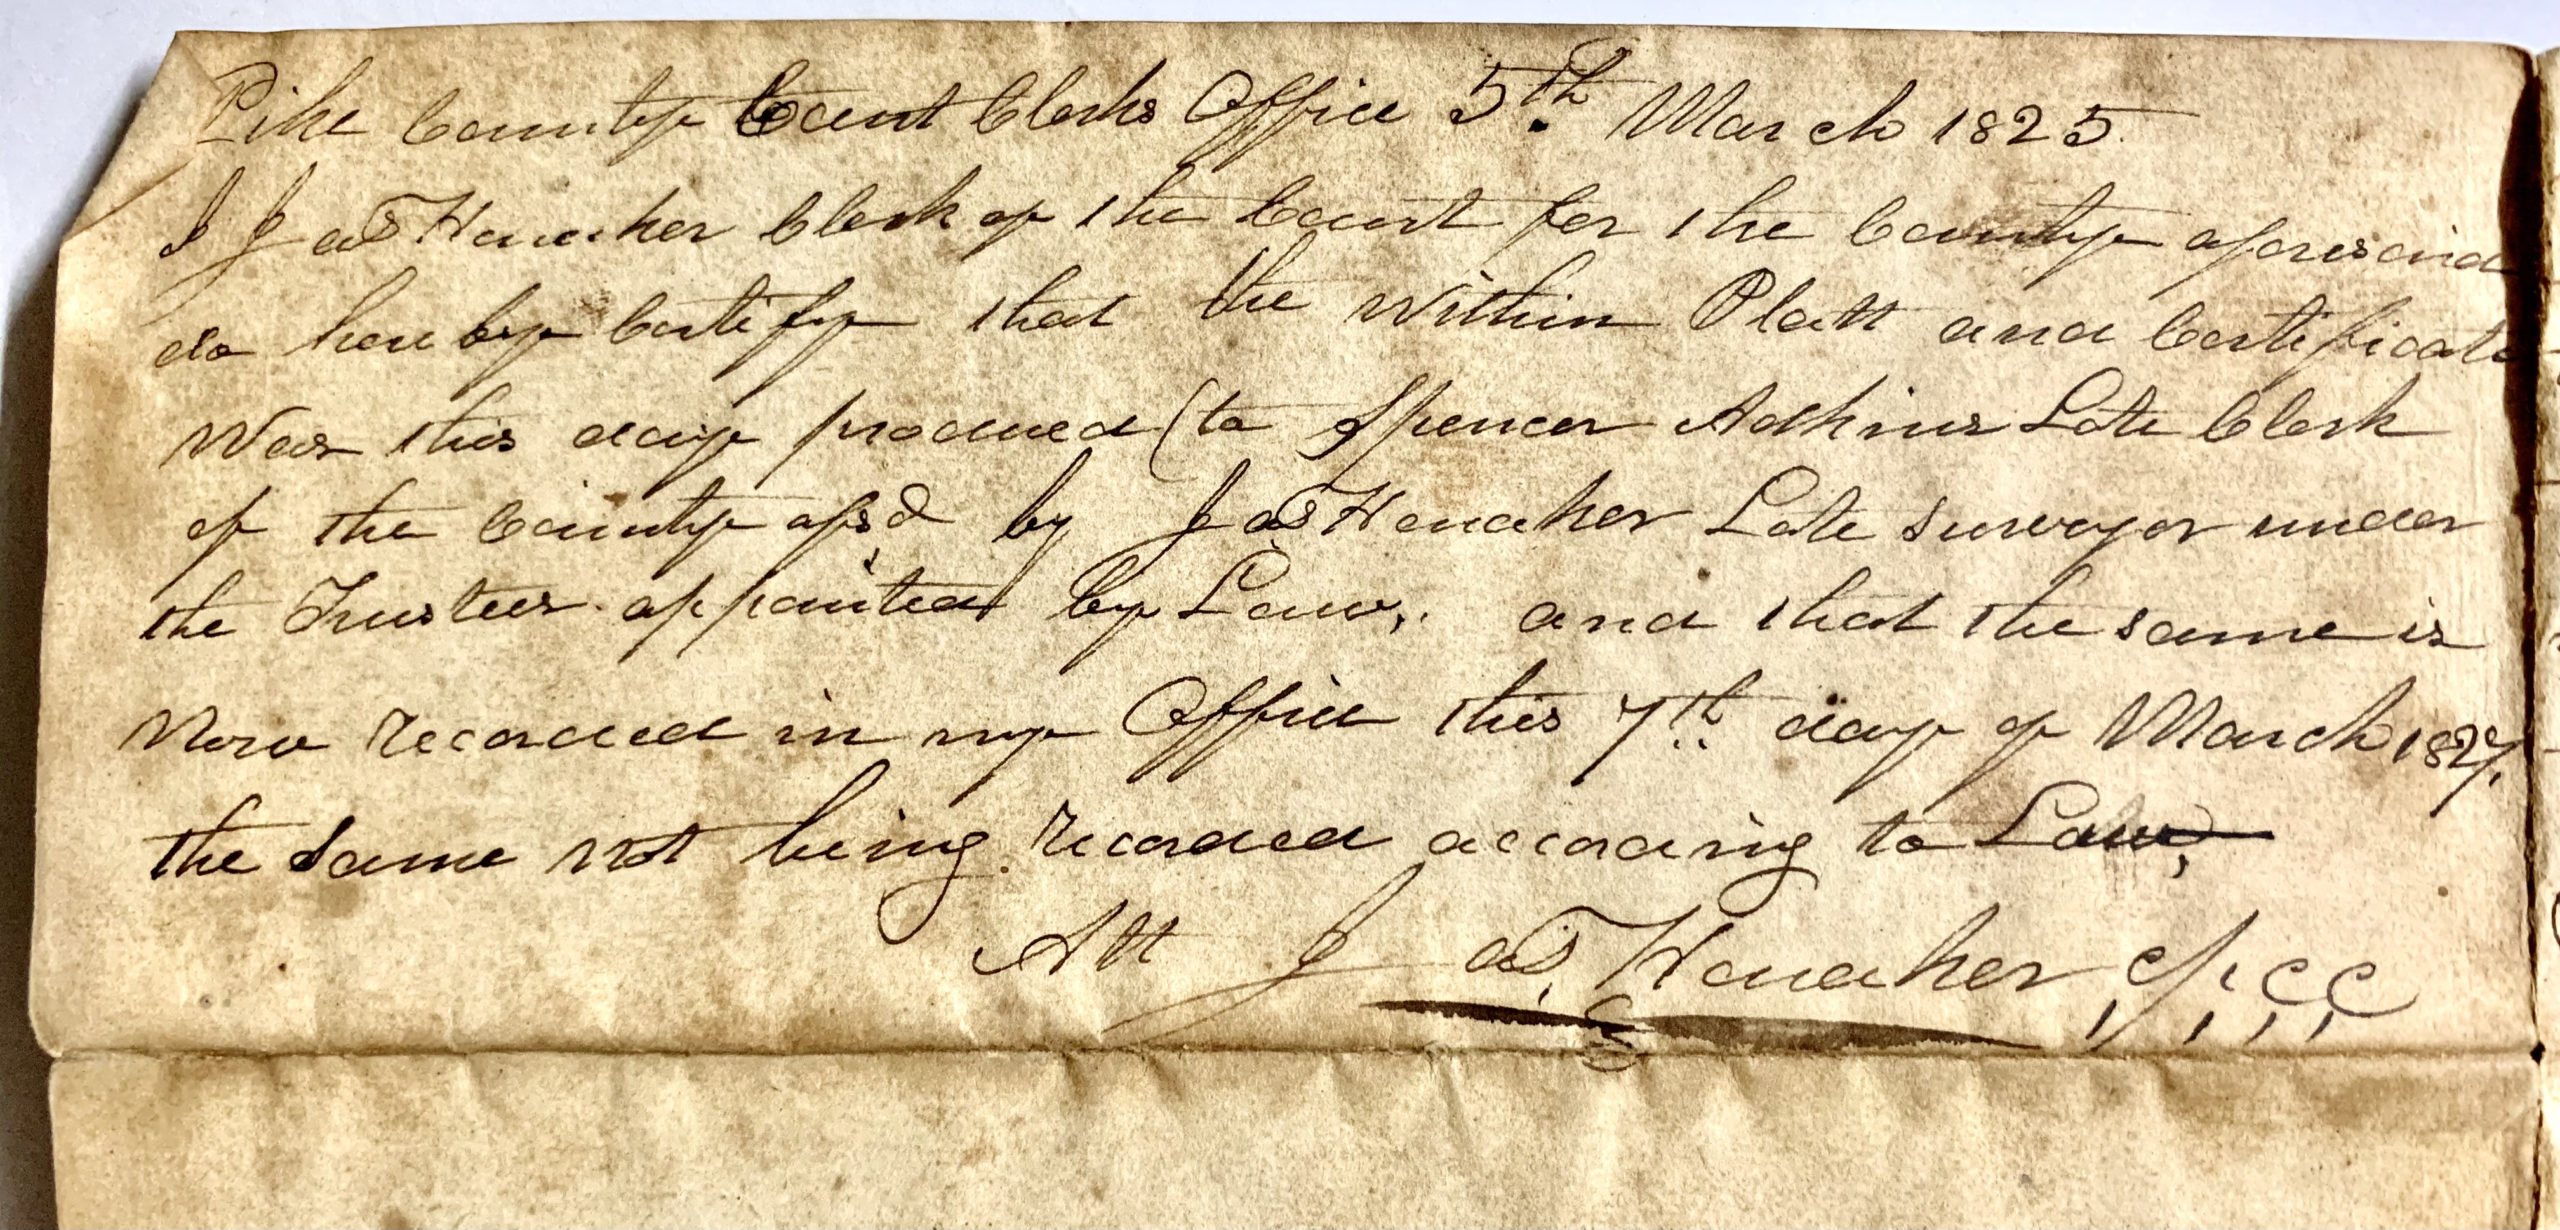 Pike County Court Clerks Office 5th March 1825.
I Jas Honaker Clerk of the Court for the County aforesaid
do hereby Certify that the within Platt and Certificate
Was this day produced (to Spencer Adkins Late Clerk
of the County afsd by Jas Honaker Late surveyor under
the Trustees appointed by Law, and that the same is
Now recorded in my Office this 7th day of March 1827,
the same not being recorded according to Law,
Att Jas, Honaker